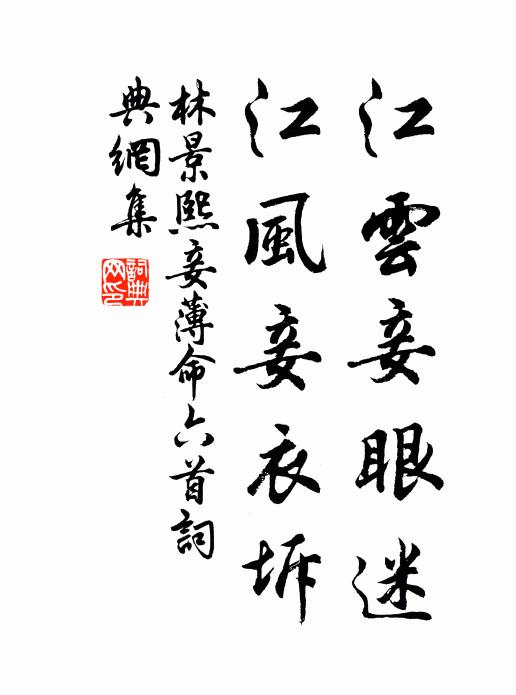 江雲妾眼迷
江風妾衣坼
林景熙妾薄命六首詞
典網集
詞典
网印